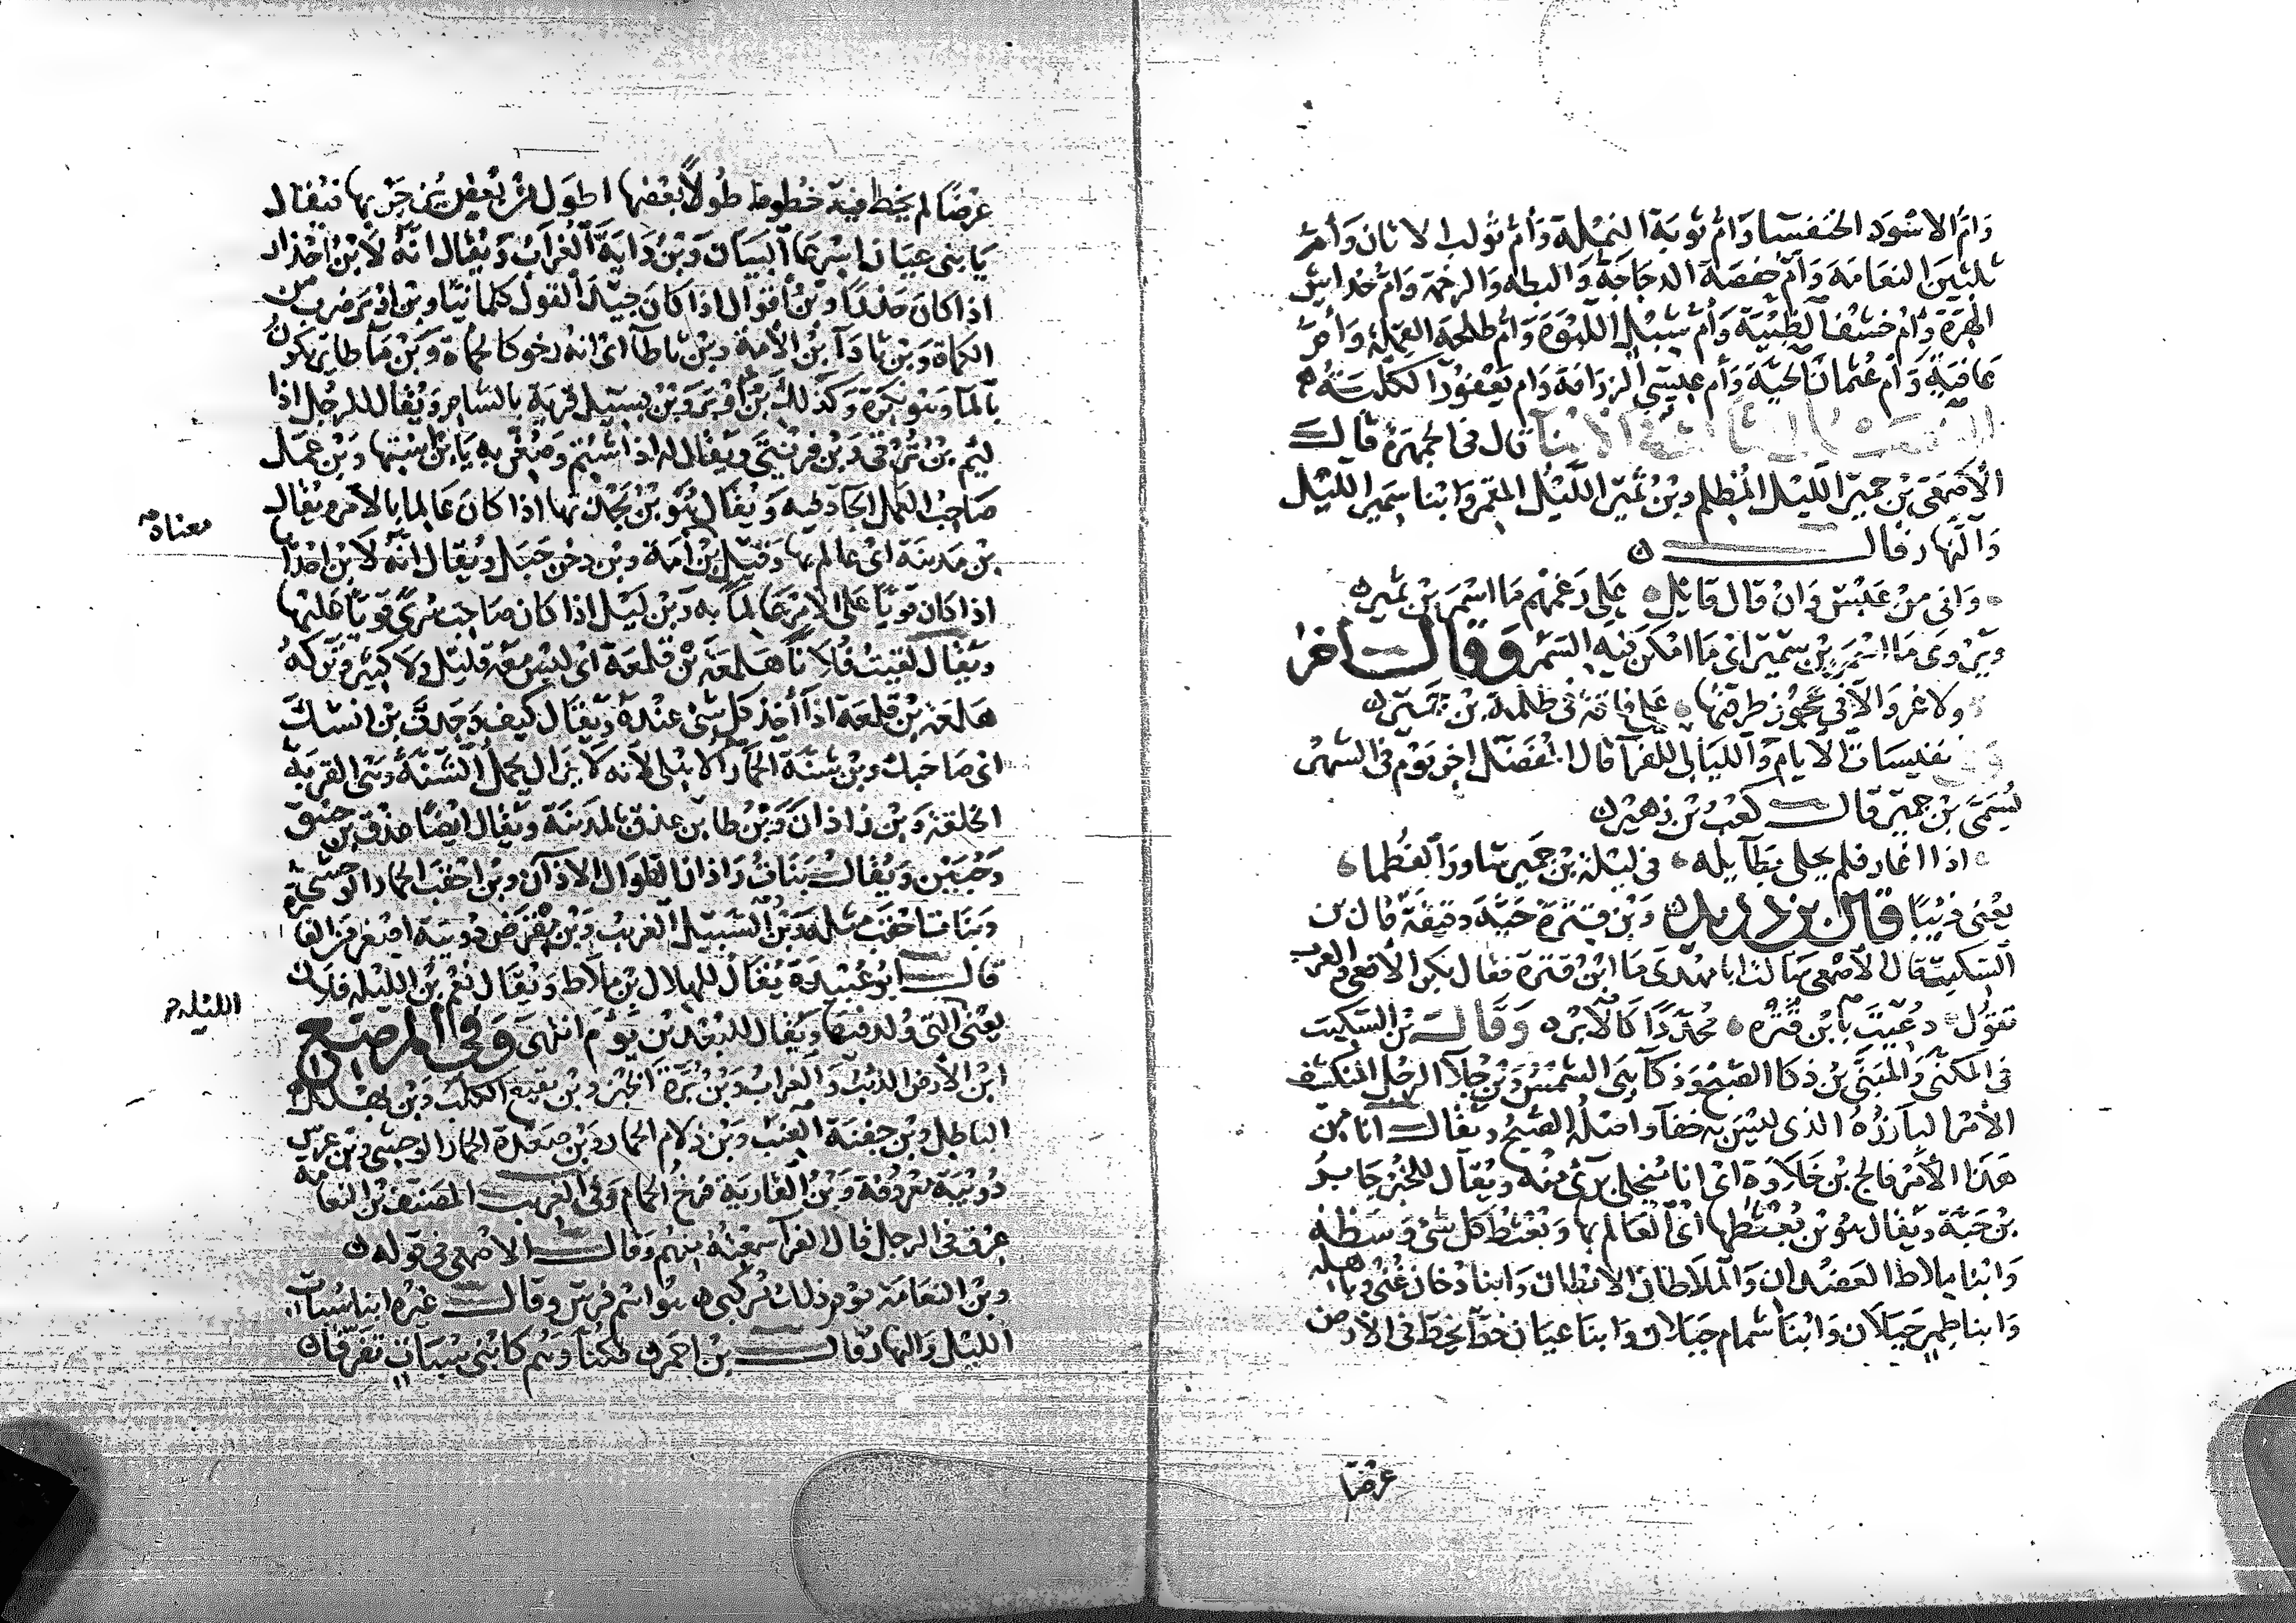 وَامّ الاسْوَد الخنفسا وَامّ تَوبَة النملة وَأمّ تولب الاتان وَأمّ
ثلثين النعامَة وَأمّ حفصَة الدجَاجَة وَالبطه وَالرخمة وَامّ خداش
الهرّة وَامّ خشف الظبْيَة وَأمّ شبل اللبْوَة وَامّ طلحة القملة وَأمّ
عَافية وَأم عُثمان الحيّة وَأم عيسى الزرَافة وَام يعفور الكلبَة
الابنا قال في الجمهرَة قالَ
الأصْمَعي بْن جمير الليْل المُظلم وبْن ثمير الليْل المقمر وَابنا سمير الليْل
وَالنهار وقال
وَاني من عبْس وَان قال قايل على رَغمهم مَا اسْمر بْن ثمير
وَيرْوى مَا اسْمر بْن سمير اي مَا امْكن فيه السمر وقال اخر
ولا غرو الا في عجُوز طرقتها على فاقة في ظلمة بْن جمير
نفيسَات الايام وَالليَالي للفرا قال المفضل اخر يَوم في الشهر
يُسَمّى بْن جمير قالَ كعْب بْن زهير
اذا اغار فلم يحلى بطايله في ليْلة بْن جمير سَاور الفطما
يعْني ذيبًا قال بن دريد وَبْن قترة حيّة دقيقة قال بن
السكيت قال الأصْمعي سَالت ابا مهدي مَا ابْن قترة فقال بكر الافعى والعرب
تقول دعيت بابن قترة محدّدًا كالابره وَقَالَ بْن السكيت
في المكنى وَالمبنى بْن ذكا الصبْح وَذكا هي الشمس وَبْن جلا الرجل المنكشف
الأمْر البَارز الذي ليْس به خفا وَاصله الصبْح ويقالُ انا من
هَذا الأمْر فالج بْن خلاوَة اي انا متخلي برئ منه ويُقال للخبْز جَابر
بْن حَبّة ويقال هُو بْن بُعْثطها أيْ العَالم بها وَبُعْثط كل شئ وَسَطه
وَابنا ملاط العَضدان وَالملاطان الابطان وَابنا دخان غنى وباهلة
وَابنا طمر جَبَلان وَابْنا شمام جَبَلان وَابنا عيَان خط يخط في الارض
عرْضًا
عرْضًا ثم يخط فيه خطوط طولاً بعْضها اطول من بَعض ثم يزجر بها فيُقال
يَا بني عيَان اسْرعا البيَان وَبْن دَاية الغُرَاب وَيُقال انهُ لابْن احذار
اذا كان حَذرًا وبْنُ اقوال اذا كان جيّد القول كلمانيًا وبْن اوبر ضرب من
الكماة وَبْن ثادَا بْن الأمَة وبْن ثاطا ايْ انه رخو كالحماة وَبْن مَا طاير يكون
بالما وَهو نكرَة وَكذلك بْن اوبر وَبْن بسيل قرية بالشام وَيُقال للرجُل اذا
ليم بْن ترْنى وَبْن فرْتنى وَيقال له اذا شتم وَصغر به يَا بْن اسْتها وَبْن عمَل
صَاحب العمل الجَاد فيه وَيُقال هُو بْن بجْدتها اذا كان عَالما بالامر ويُقال
معناه
بْن مَدينة ايْ عالم بها وَقيل بْن أمَة وبْن دخن جَبَل وَيُقال انّه لابن احدَاها
اذا كان قويًّا على الامْر عَالمًا به وَبْن ليْل اذا كان صَاحب سُرى قويًا عَليْها
ويقال لقيت فلانًا هلمعَة بْن قلمعَة ايْ ليْس مَعه قليْل ولا كثير وَتركه
هَلمعَة بْن قلمعَة اذا أخذ كل شئ عنْدهُ ويُقال كيف وَجدت بْن انسك
اي صَاحبك وبْن شنّة الحمار الاهلى لأنه لا يزال يحمل الشنّة وهي القربة
الخلقة وَبْن زاذان وَبْن طاب عذق بالمدينة وَيقال ايْضًا عذق بْن حبيق
وَحُبَيْن وَيُقالُ بَنات زَاذان لطوَال الاذان وبْن احْقب الحمار الوحشي
وَبنات احْقب مثله وبْن السبيل الغريب وَبْن مقرض دويبَة اصْغر من الفار
قالَ ابو عُبيْدة يُقال للهلال بْن ملاط وَيُقال نعْم بْن الليْله فلان
الليله
يعْني التي وُلد فيها وَيُقال للبُعد بْن يَوم انتهى وَفي المرصّع
ابْن الأرض الذئب وَالغراب وَبْن برّة الخبْز وَبْن بقيع الكلب وَبْن بهلل
الباطل وبْن جفنة العنب وَبْن دلام الحمار وَبْن صَعْدة الحمار الوحشي وَبْن عرس
دُويْبة مَعْروفة وَبْن القارية فرخ الحمام وَفي الغريب المصَنف بْن النعَامة
عرْق في الرجل قال الفرا سمعته منهم وَقالَ الأصْمعي في قوله
وَبْن النعَامة يَوم ذلك مَرْكبي هُو اسْم فرس وَقالَ غيره ابنا سُبَات
الليْل وَالنهار قالَ بْن احمر فكنا وَهم كابني سُبَات تفرّقا